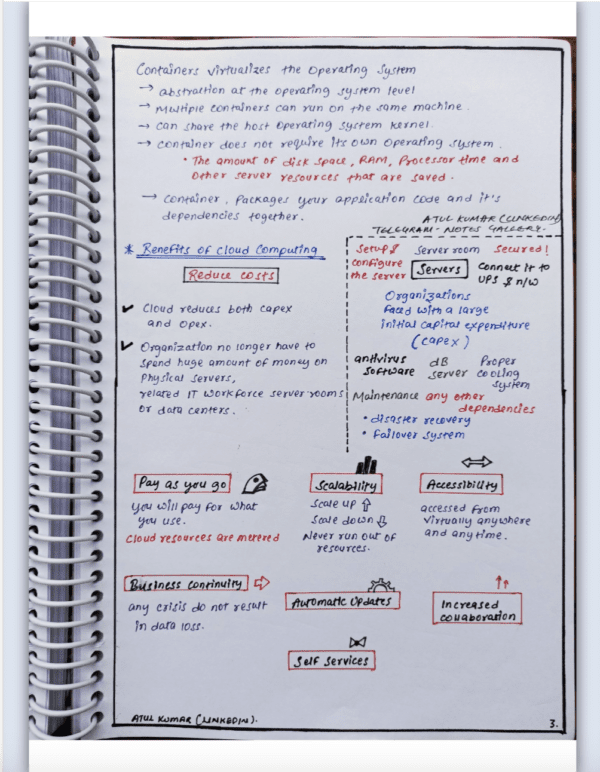 Containers virtualizes the operating System
→ abstraction at the operating system level
→ Multiple containers can run on the same machine.
→ can share the host operating system kernel.
→ container does not require its own operating system.
• The amount of disk space, RAM, Processor time and
other server resources that are saved.
→ container, Packages your application code and it's
dependencies together.
ATUL KUMAR (LINKEDIN)
TELEGRAM - NOTES GALLERY.
* Benefits of cloud Computing
Reduce costs
✓ Cloud reduces both capex
and opex.
✓ Organization no longer have to
spend huge amount of money on
physical servers,
related IT workforce server rooms
or data centers.
Setup &
configure
the server
server room
Servers
Secured!
Connect it to
UPS & n/w
Organizations
faced with a large
initial capital expenditure
(capex)
antivirus
software
dB
server
Proper
cooling
system
Maintenance any other
dependencies
• disaster recovery
• failover system
Pay as you go
You will pay for what
you use.
Cloud resources are metered
Scalability
Scale up ⇧
Scale down ⇩
Never run out of
resources.
↔
Accessibility
accessed from
virtually anywhere
and anytime.
Business continuity ⇨
any crisis do not result
in data loss.
Automatic Updates
↑↑
Increased
collaboration
Self Services
ATUL KUMAR (LINKEDIN).
3.